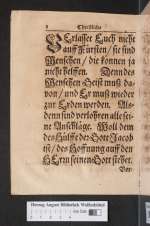 8 Christliche
VErlasset Euch nicht
auff Fürsten/ sie sind
Menschen/ die können ja
nicht helffen. Denn des
Menschen Geist muß da-
von/ und Er muß wieder
zur Erden werden. Als-
denn sind verlohren alle sei-
ne Anschläge. Woll dem
des Hülffe der Gott Jacob
ist/ des Hoffnung auff den
HErrn seinen Gott stehet.
Herzog August Bibliothek Wolfenbüttel